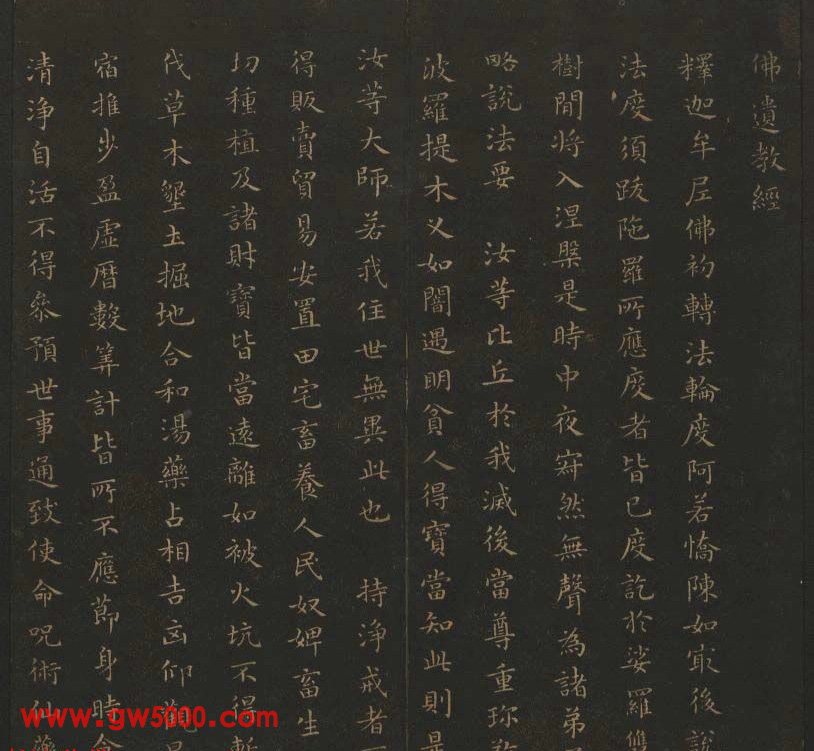 佛遺教經
釋迦牟尼佛初轉法輪度阿若憍陳如冣後說
法度須跋陁羅所應度者皆已度訖於娑羅雙
樹間將入涅槃是時中夜寂然無聲為諸弟
略說法要 汝等比丘於我滅後當尊重珎敬
波羅提木叉如闇遇明貧人得寶當知此則是
汝等大師若我住世無異此也 持淨戒者不
得販賣貿易安置田宅畜養人民奴婢畜生
切種植及諸財寶皆當遠離如被火坑不得斬
伐草木墾土掘地合和湯藥占相吉凶仰觀星
宿推步盈虛曆數筭計皆所不應節身時食
清淨自活不得叅預世事通致使命呪術仙藥
www.gw5000.com